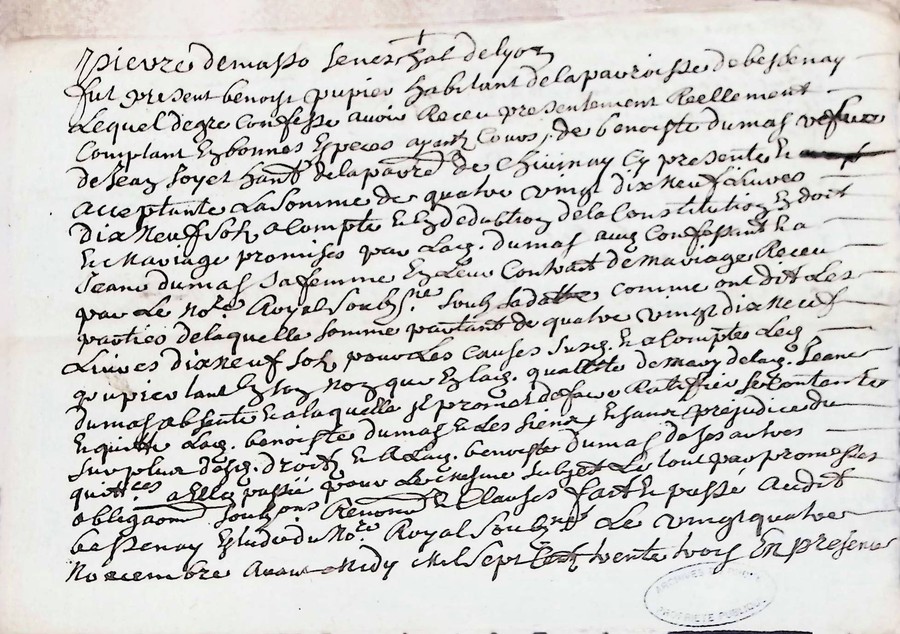 Pierre Demasso seneschal de lyon
fut present benoist pupier habitant de la parroisse de bessenay
Lequel de gre confesse avoir Receu presentement Reellement
Comptant En bonnes Especes ayant Cours, de benoiste dumas vefve
de Jean Soyet hant de la parre de Chivinay Cy presente Et
acceptante La Somme de quatre vingt dix neuf Livres
dix Neuf Sols a Compte Et En deduction de la Constitution En doit
Et Mariage promises par Lad. dumas aud. Confessant Et a
Jeane dumas Sa femme En Leur Contrait de mariage Receu
par Le Nore Royal Soubsne Soubs Sa datte Comme ont dit Les
parties de laquelle Somme partant de quatre vingt dix neuf
Livres dix neuf Sols pour Les Causes Susd. Et a Compte Led.
pupier tant En Son Nom que En lad. quallite de mary de lad. Jeane
dumas absente Et a laquelle Il promet de faire Ratefier Se Contente
Et quitte Lad. benoiste dumas Et Les Siens, Et Sans prejudice du
Surplus desd. droits Et a Lad. benoiste dumas de Ses autres
quittces a Elle passées pour Le mesme Subjet Le tout par promesses
obligaons Soubons Renons Et Clauses fait Et passé audit
bessenay Etude du Nore Royal Soubsne Le vingt quatre
Novembre avant Midy Mil Sept Cent trente trois En presence
PROPRIÉTÉ PUBLIQUE